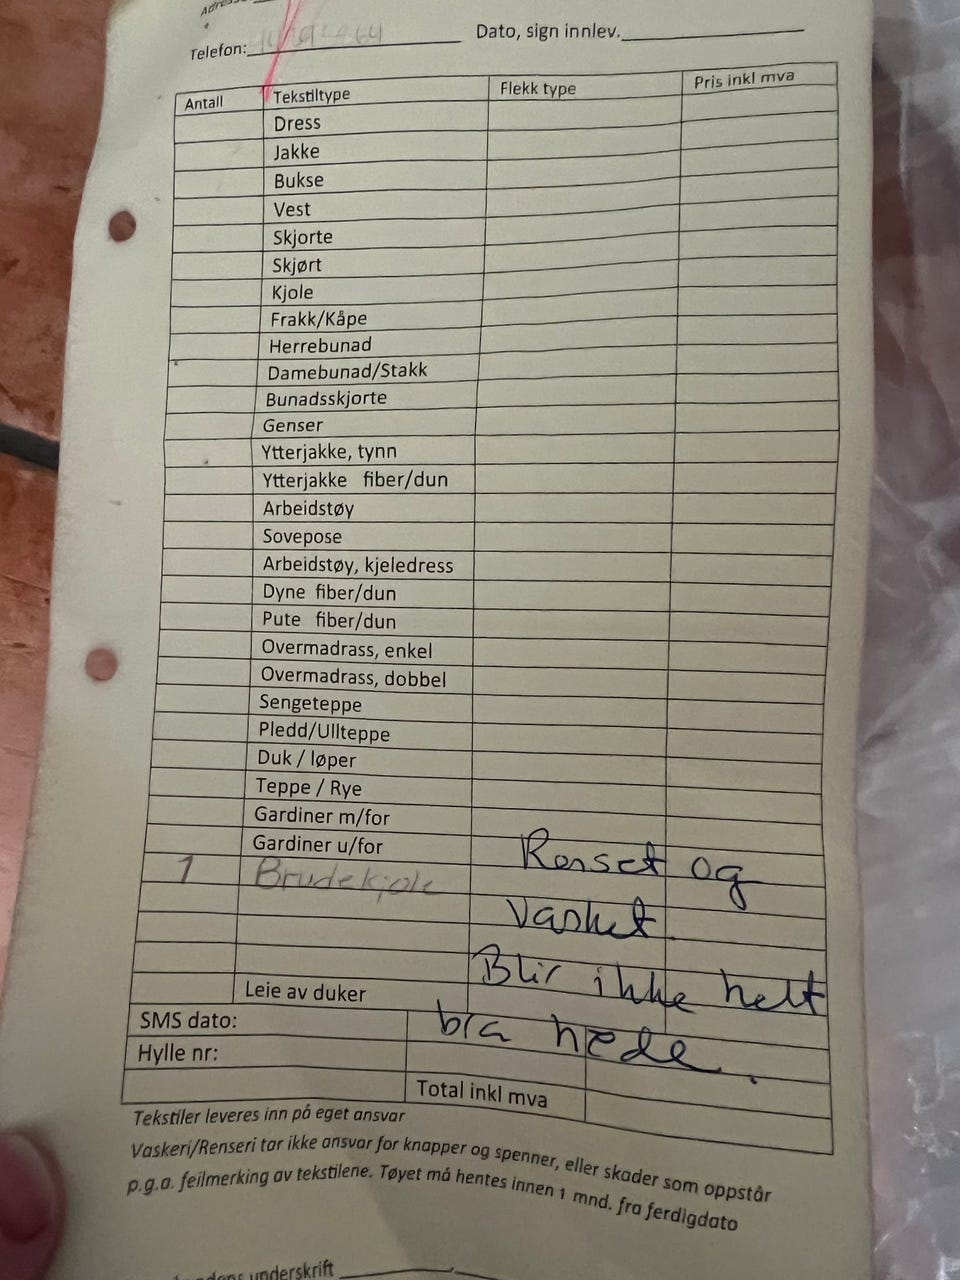 Telefon: Dato, sign innlev.
Antall Tekstiltype Flekk type Pris inkl mva
Dress
Jakke
Bukse
Vest
Skjorte
Skjørt
Kjole
Frakk/Kåpe
Herrebunad
Damebunad/Stakk
Bunadsskjorte
Genser
Ytterjakke, tynn
Ytterjakke fiber/dun
Arbeidstøy
Sovepose
Arbeidstøy, kjeledress
Dyne fiber/dun
Pute fiber/dun
Overmadrass, enkel
Overmadrass, dobbel
Sengeteppe
Pledd/Ullteppe
Duk / løper
Teppe / Rye
Gardiner m/for
Gardiner u/for
1 Brudekjole
Renset og
Vasket.
Blir ikke helt
bra nede.
Leie av duker
SMS dato:
Hylle nr:
Total inkl mva
Tekstiler leveres inn på eget ansvar
Vaskeri/Renseri tar ikke ansvar for knapper og spenner, eller skader som oppstår
p.g.a. feilmerking av tekstilene. Tøyet må hentes innen 1 mnd. fra ferdigdato
underskrift